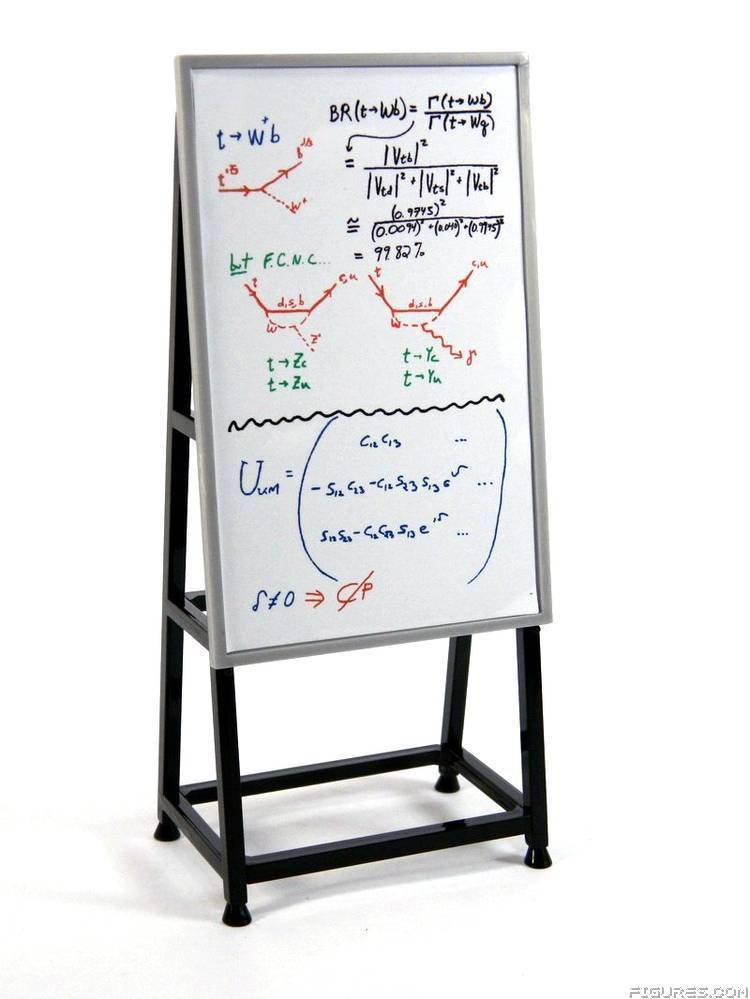 BR(t→Wb) = Γ(t→Wb) / Γ(t→Wq)
t→W⁺b
= |Vtb|² / |Vtd|² + |Vts|² + |Vtb|²
≅ (0.9745)² / (0.0094)² + (0.040)² + (0.9745)²
= 99.82%
but F.C.N.C...
t d,s,b c,u W Z°
t d,s,b c,u W γ
t→Zc
t→Zu
t→γc
t→γu
c₁₂c₁₃ ...
U = -s₁₂c₂₃-c₁₂s₂₃s₁₃e ...
s₁₂s₂₃-c₁₂c₂₃s₁₃e^iδ ...
δ≠0 ⇒ CP
FIGURES.COM